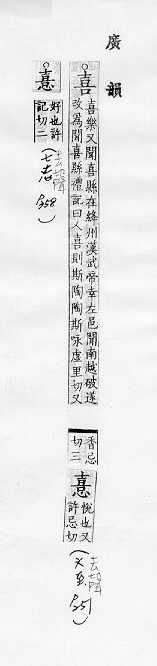 廣韻
喜 喜樂又聞喜縣在絳州漢武帝幸左邑聞南越破遂
改爲聞喜縣禮記曰人喜則斯陶陶斯咏虛里切又
香忌
切三
憙 悅也又
許忌切
憙 好也許
記切二